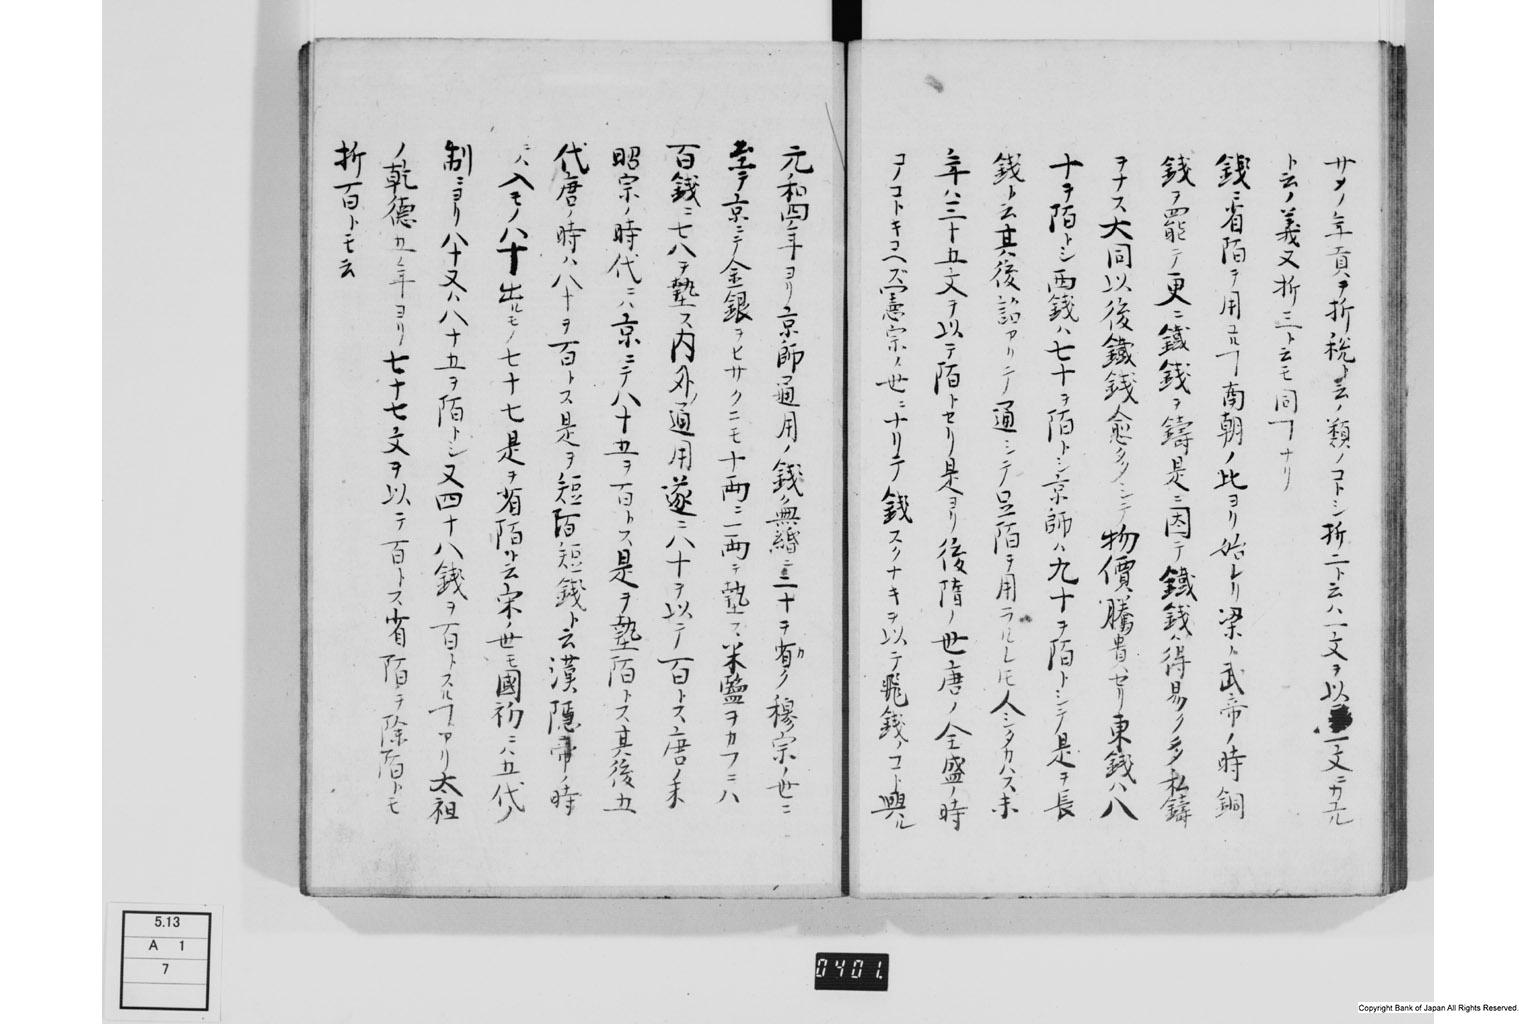 サメノ年貢ヲ折税ト云ノ類ノコトシ折二ト云ハ一文ヲ以二文ニカユル
ト云ノ義又折三ト云モ同フナリ
銭ニ省陌ヲ用ユルヿ南朝ノ比ヨリ始レリ梁ノ武帝ノ時銅
銭ヲ罷テ更ニ鐵銭ヲ鋳是ニ因テ鐵銭ハ得易ク多ク私鋳
ヲナス大同以後鐵銭愈多クシテ物價騰貴セリ東銭ハ八
十ヲ陌トシ西銭ハ七十ヲ陌トシ京師ハ九十ヲ陌トシテ是ヲ長
銭ト云其後詔アリテ通シテ足陌ヲ用ラルレモ人シタカハス末
年ハ三十五文ヲ以テ陌トセリ是ヨリ後隋ノ世唐ノ全盛ノ時
コノコトキコヘズ憲宗ノ世ニナリテ銭スクナキヲ以テ飛銭ノコト興ル
元和四年ヨリ京師通用ノ銭毎緡ニ二十ヲ省ク穆宗ノ世ニ
至テ京ニテ金銀ヲヒサクニモ十両ニ一両ヲ墊ス米鹽ヲカフニハ
百銭ニ七八ヲ墊ス内外ノ通用遂ニ八十ヲ以テ百トス唐ノ末
昭宗ノ時代ニハ京ニテ八十五ヲ百トス是ヲ墊陌トス其後五
代唐ノ時ハ八十ヲ百トス是ヲ短陌短銭ト云漢隠帝ノ時
ニハ入モノ八十出ルモノ七十七是ヲ省陌ト云宋ノ世モ國初ニハ五代ノ
制ニヨリ八十又ハ八十五ヲ陌トシ又四十八銭ヲ百トスルヿアリ太祖
ノ乾德五年ヨリ七十七文ヲ以テ百トス省陌ヲ除陌トモ
折百トモ云
5.13
A 1
7
0401.
Copyright Bank of Japan All Rights Reserved.